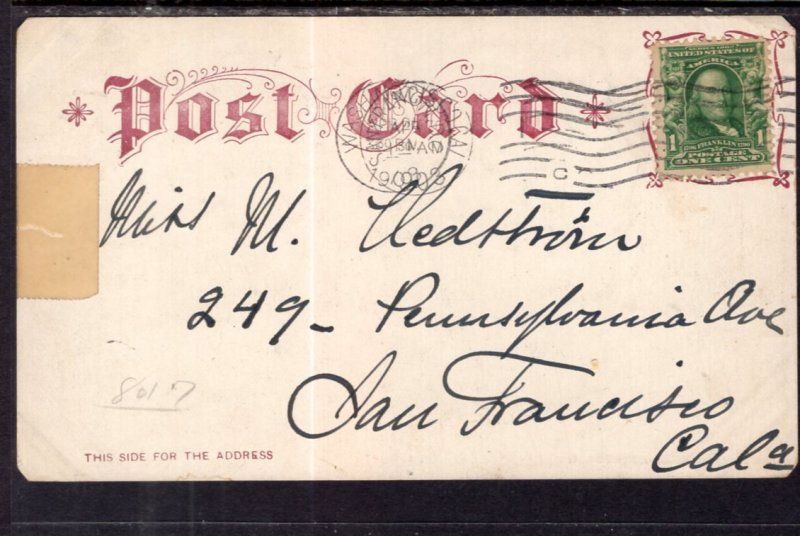 Post Card
SERIES 1902
UNITED STATES OF
AMERICA
1 1
1706 FRANKLIN 1790
POSTAGE
ONE CENT
APR
1908
Miss M. Hedström
249- Pennsylvania Ave
San Francisco
Cala
8017
THIS SIDE FOR THE ADDRESS